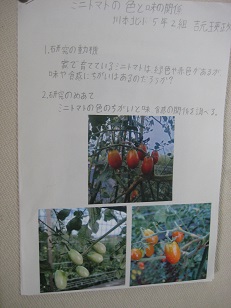 ミニトマトの色と味の関係
5年2組
1.研究の動機
家で育てているミニトマトは緑色や赤色があるが
味や食感にちがいはあるのだろうか？
2.研究のめあて
ミニトマトの色のちがいと味の関係を調べる。